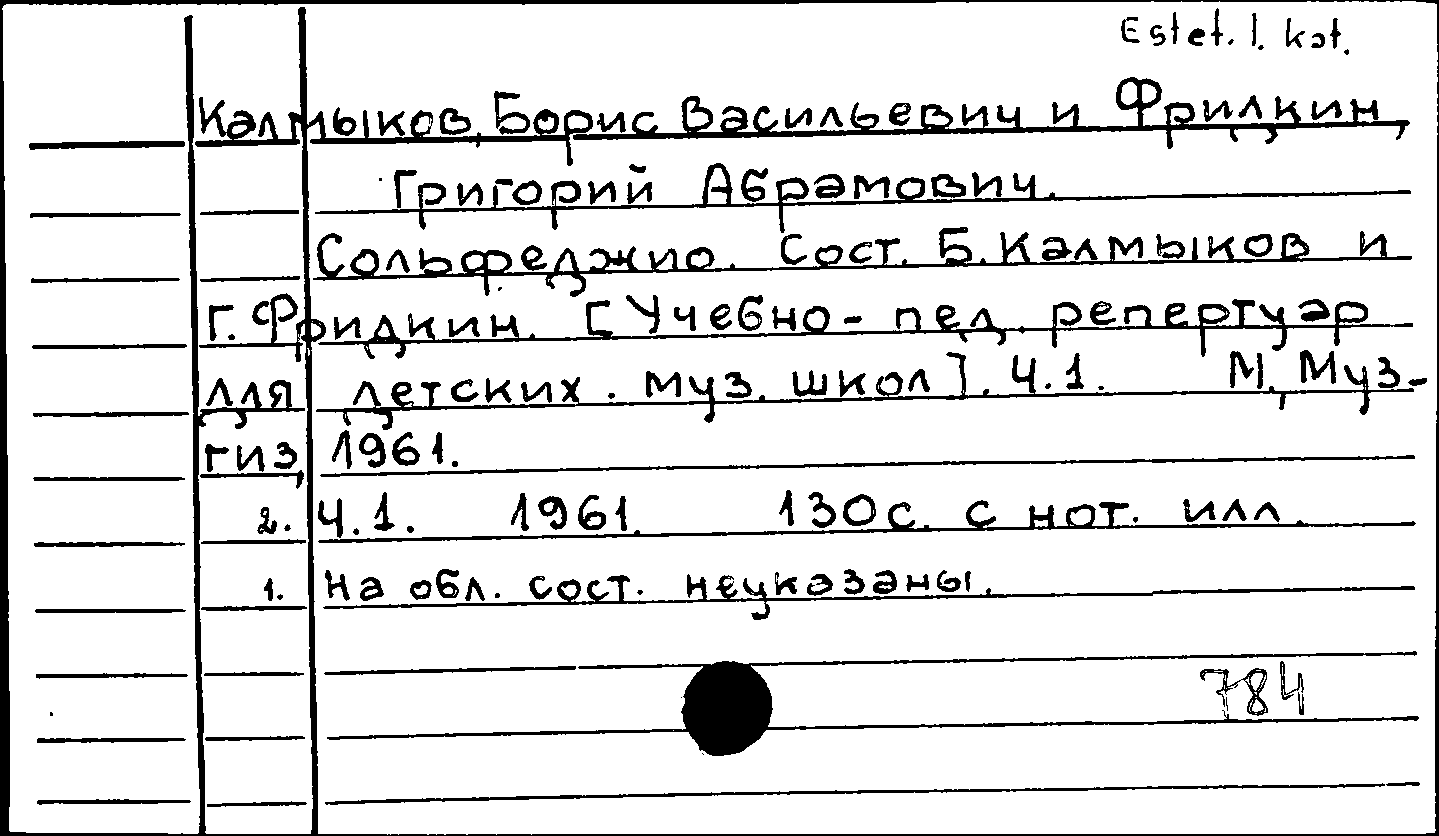 Estet. l. kat.
Калмыков, Борис Васильевич и Фридкин,
Григорий Абрамович.
Сольфеджио. Сост. Б. Калмыков и
Г. Фридкин. [Учебно-пед. репертуар
для детских. муз. школ]. Ч.1. М., Муз-
гиз, 1961.
2. Ч.1. 1961. 130с. с нот. илл.
1. На обл. сост. неуказаны.
784